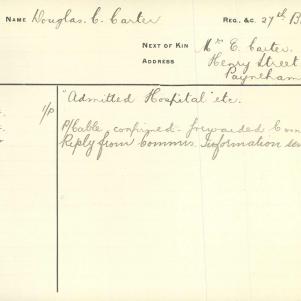 NAME Douglas. C. Carter
REG. &C. 27th B
NEXT OF KIN Mrs E. Carter.
ADDRESS Henry Street
Payneham
1/P "Admitted Hospital" etc.
P/Cable confirmed - forwarded Com
Reply from Commrs. Information sen